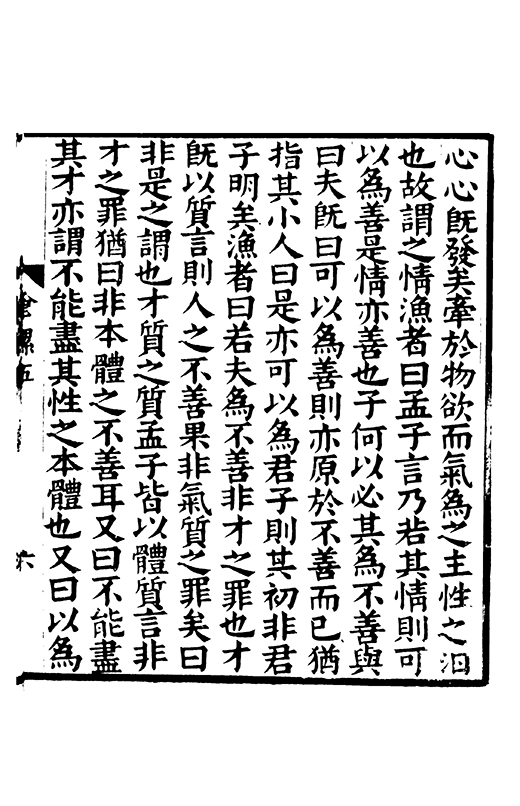 心心既發矣牽於物欲而氣為之主性之汩
也故謂之情漁者曰孟子言乃若其情則可
以為善是情亦善也子何以必其為不善與
曰夫既曰可以為善則亦原於不善而已猶
指其小人曰是亦可以為君子則其初非君
子明矣漁者曰若夫為不善非才之罪也才
既以質言則人之不善果非氣質之罪矣曰
非是之謂也才質之質孟子皆以體質言非
才之罪猶曰非本體之不善耳又曰不能盡
其才亦謂不能盡其性之本體也又曰以為